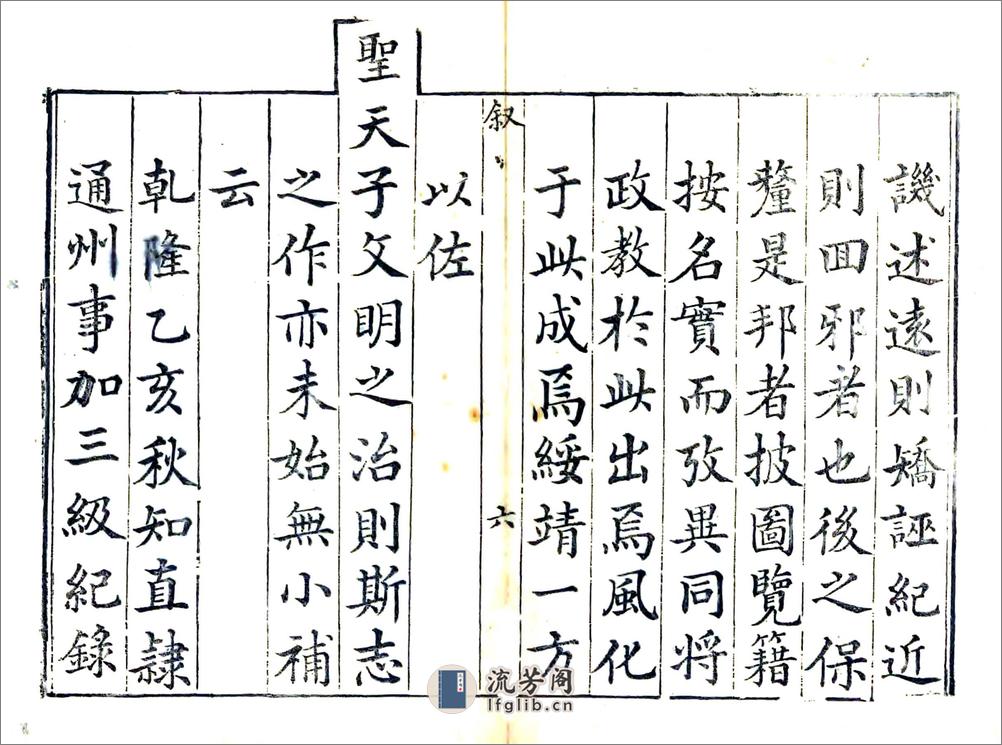 譏述遠則矯誣紀近
則回邪者也後之保
釐是邦者披圖覽籍
按名實而攷異同將
政教於此出焉風化
于此成焉綏靖一方
叙
六
以佐
聖天子文明之治則斯志
之作亦未始無小補
云
乾隆乙亥秋知直隷
通州事加三級紀錄
流芳阁
lfglib.cn